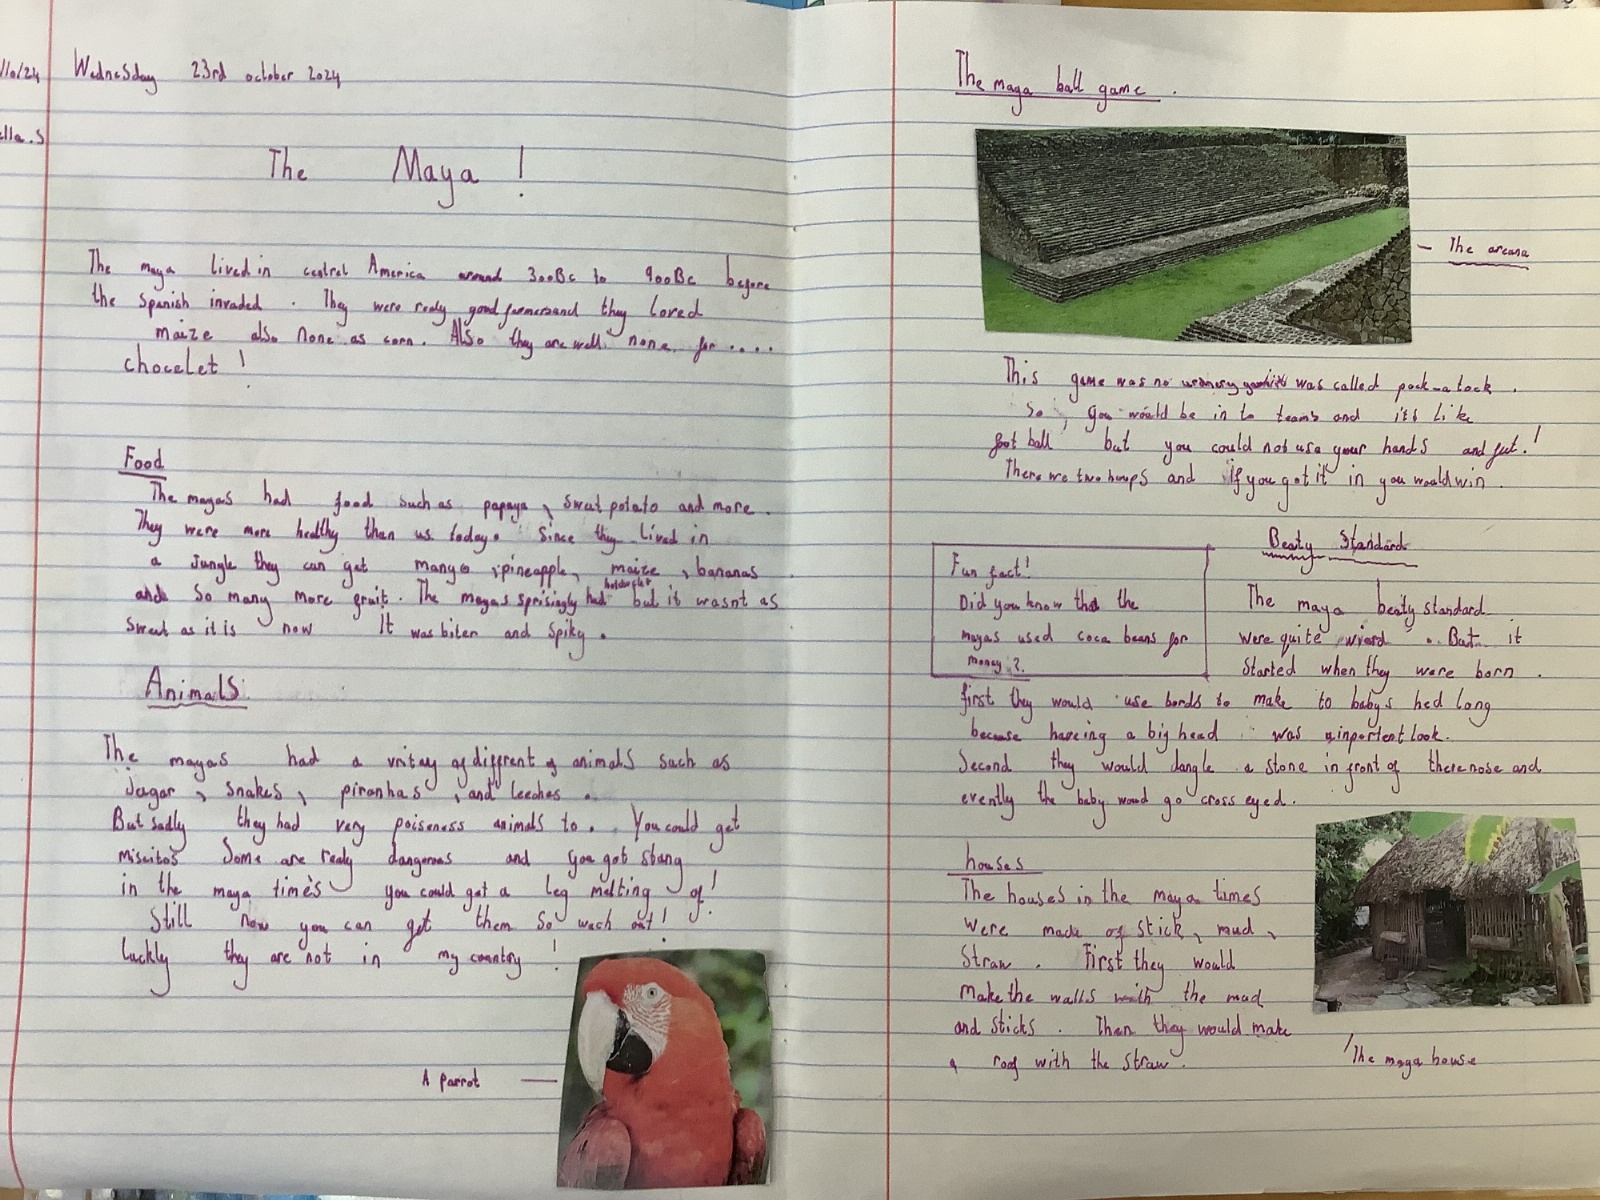 /10/24
Wednesday 23rd october 2024
ella.S
The Maya !
The maya lived in central America around 300Bc to 900Bc before
the Spanish invaded . They were realy good farmersand they loved
maize also none as corn. Also they are well none for ....
chocelet !
Food
The mayas had food such as papaya , sweat potato and more .
They were more healthy than us today. Since they lived in
a Jungle they can get mango , pineapple, maize , bananas
and so many more fruit . The mayas sprisingly had but it wasnt as
sweat as it is now It was biter and spiky .
Animals.
The mayas had a vritay of diffrent of animals such as
Jagar , snakes , piranhas , and leeches .
But sadly they had very poiseness animals to . You could get
Miscitos Some are realy dangerous and you got stang
in the maya times you could get a leg melting of!
Still now you can get them so wach out!
luckly they are not in my country !
A parrot
The maya ball game .
The areana
This game was no was called pock-a tock .
So , you would be in to teams and it's like
foot ball but you could not use your hands and fut!
There are two hoops and if you got it in you would win .
Beaty Standard
Fun fact!
Did you know that the
mayas used coca beans for
money ?
The maya beaty standard
were quite wierd . But it
started when they were born .
first they would use bords to make to babys hed long
because haveing a big head was a inportent look.
Second they would dangle a stone in front of there nose and
evently the baby woud go cross eyed .
houses
The houses in the maya times
were made of stick , mud ,
straw . First they would
make the walls with the mud
and sticks . Then they would make
a roof with the straw .
The maya house